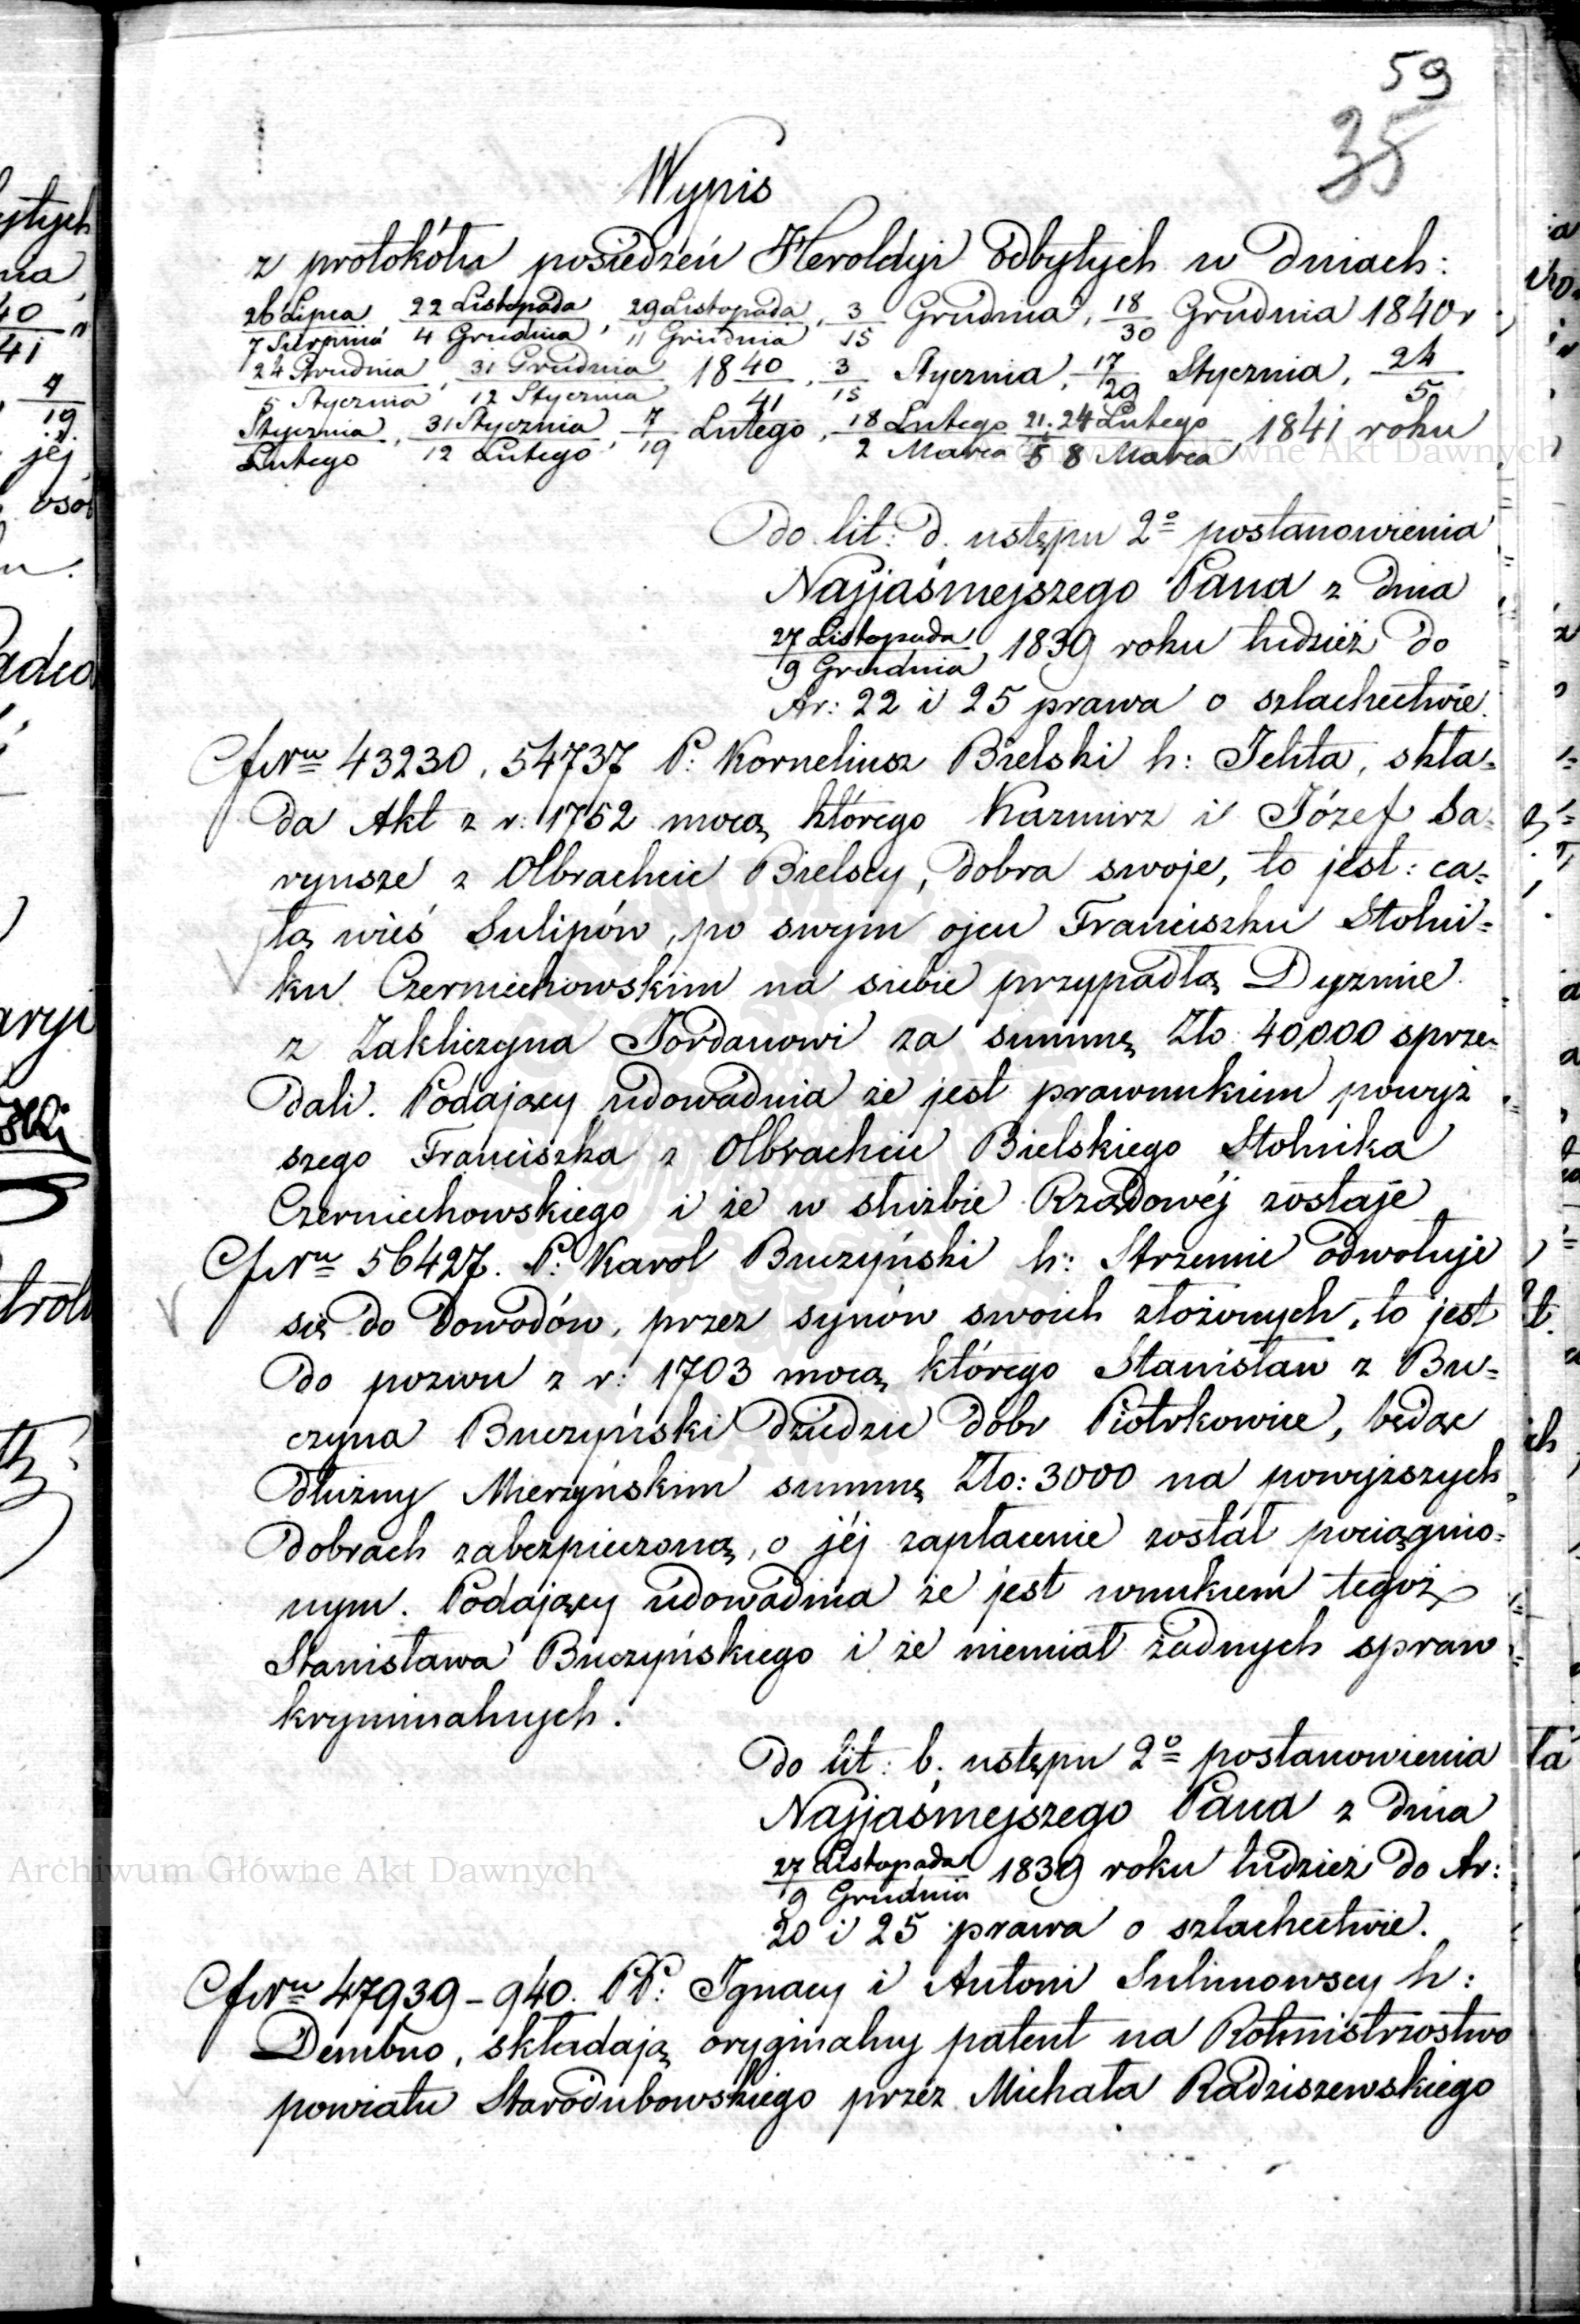 59
35
Wypis
z protokółu posiedzeń Heroldyi odbytych w dniach:
26 Lipca / 7 Sierpnia, 22 Listopada / 4 Grudnia, 29 Listopada / 11 Grudnia, 3/15 Grudnia, 18/30 Grudnia 1840 r
24 Grudnia / 5 Stycznia, 31 Grudnia / 12 Stycznia 18 40/41, 3/15 Stycznia, 17/29 Stycznia, 24/5
Stycznia / Lutego, 31 Stycznia / 12 Lutego, 7/19 Lutego, 18 Lutego / 2 Marca 21. 24 Lutego / 5 8 Marca 1841 roku
Do lit: d. ustępu 2º postanowienia
Najjaśniejszego Pana z dnia
27 Listopada / 9 Grudnia 1839 roku tudzież do
Ar: 22 i 25 prawa o szlachectwie.
43230, 54737 P. Korneliusz Bielski h: Jelita, skła=
da Akt z r: 1752 mocą którego Kazmirz i Józef Sa=
ryusze z Olbrachcic Bielscy, dobra swoje, to jest: ca=
łą wieś Sulipów, po swym ojcu Franciszku Stolni=
ku Czerniechowskim na siebie przypadłą Dyzmie
z Zakliczyna Jordanowi za summę Zło: 40,000 sprze=
dali. Podający udowadnia że jest prawnukiem powyż
szego Franciszka z Olbrachcic Bielskiego Stolnika
Czerniechowskiego i że w służbie Rządowéj zostaje
56427. P: Karol Buczyński h: Strzemie odwołuje
się do dowodów, przez synów swoich złożonych, to jest
do pozwu z r: 1703 mocą którego Stanisław z Bu=
czyna Buczyński dziedzic dóbr Piotrkowice, będąc
dłużny Mierzyńskim summę Zło: 3000 na powyższych
dobrach zabezpieczoną, o jéj zapłacenie został pociągnio=
nym. Podający udowadnia że jest wnukiem tegoż
Stanisława Buczyńskiego i że niemiał żadnych spraw
kryminalnych.
Do lit: b. ustępu 2º postanowienia
Najjaśniejszego Pana z dnia
27 Listopada / 9 Grudnia 1839 roku tudzież do Ar:
20 i 25 prawa o szlachectwie.
47939 - 940. PP: Ignacy i Antoni Sulimowscy h:
Dembno, składają oryginalny patent na Rotmistrzostwo
powiatu Starodubowskiego przez Michała Radziszewskiego
Archiwum Główne Akt Dawnych